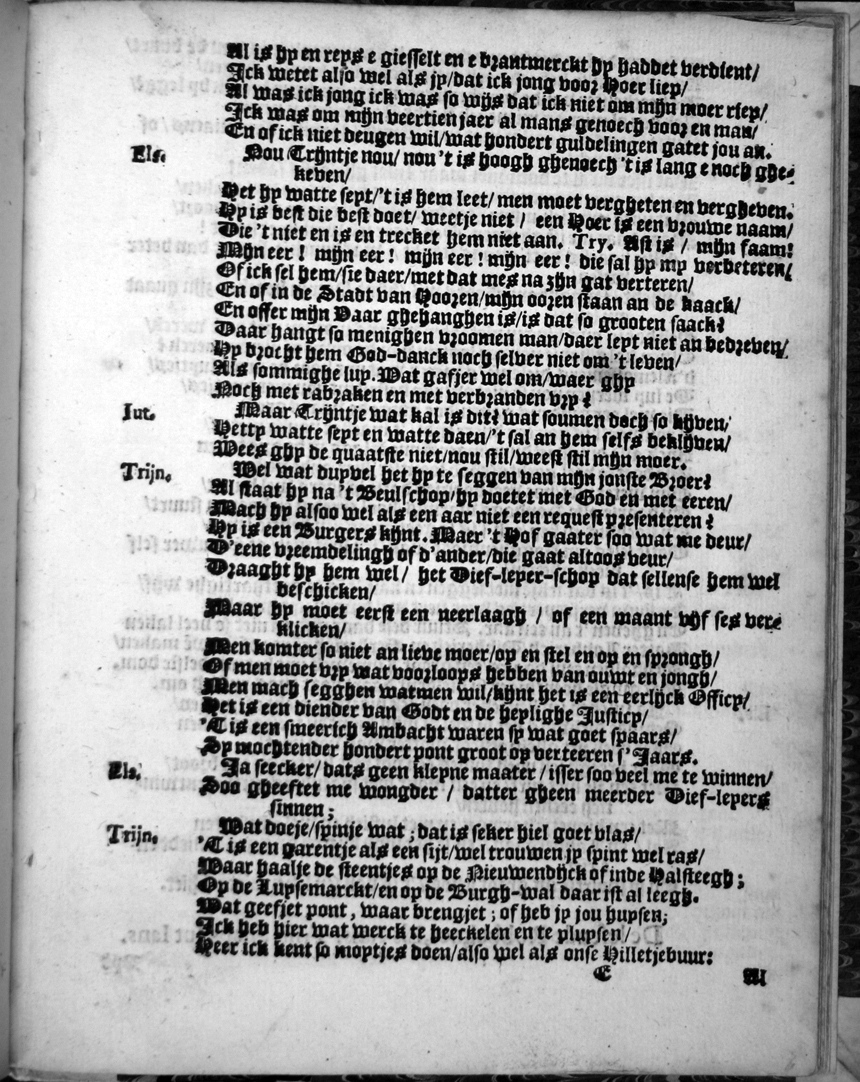 Al is hy en reys e giesselt en e brantmerckt hy haddet verdient/
Ick wetet also wel als jy/dat ick jong voor Hoer liep/
Al was ick jong ick was so wijs dat ick niet om mijn moer riep/
Ick was om mijn veertien jaer al mans genoech voor en man/
En of ick niet deugen wil/wat hondert guldelingen gatet jou an.
Els. Nou Trijntje nou/ nou 't is hoogh ghenoech 't is lang e noch ghe-
keven/
Het hy watte seyt/'t is hem leet/ men moet vergheten en vergheven.
Hy is best die best doet/ weetje niet / een Hoer is een vrouwe naam/
Die 't niet en is en trecket hem niet aan. Try. Ast is / mijn faam!
Mijn eer ! mijn eer ! mijn eer ! mijn eer ! die sal hy my verbeteren/
Of ick sel hem/sie daer/met dat mes na zijn gat verteren/
En of in de Stadt van Hooren/mijn ooren staan an de kaack/
En offer mijn Vaar ghehanghen is/is dat so grooten saack?
Daar hangt so menighen vroomen man/daer leyt niet an bedreven/
Hy brocht hem God-danck noch selver niet om 't leven/
Als sommighe luy. Wat gafjer wel om/waer ghy
Noch met rabraken en met verbranden vry?
Iut. Maar Trijntje wat kal is dit? wat soumen doch so kijven/
Hetty watte seyt en watte daen/'t sal an hem selfs beklijven/
Wees ghy de quaatste niet/nou stil/weest stil mijn moer.
Trijn. Wel wat duyvel het hy te seggen van mijn jonste Broer?
Al staat hy na 't Beulschop/hy doetet met God en met eeren/
Mach hy alsoo wel als een aar niet een request presenteren?
Hy is een Burgers kijnt. Maer 't Hof gaater soo wat me deur/
D'eene vreemdelingh of d'ander/die gaat altoos veur/
Draaght hy hem wel/ het Dief-leyer-schop dat sellense hem wel
beschicken/
Maar hy moet eerst een neerlaagh / of een maant vijf ses ver-
klicken/
Men komter so niet an lieve moer/op en stel en op en sprongh/
Of men moet vry wat voorloops hebben van ouwt en jongh/
Men mach segghen watmen wil/kijnt het is een eerlijck Officy/
Het is een diender van Godt en de heylighe Justicy/
'T is een smeerich Ambacht waren sy wat goet spaars/
Sy mochtender hondert pont groot op verteeren s'Jaars.
Els. Ja seecker/ dats geen kleyne maater / isser soo veel me te winnen/
Soo gheeftet me wongder / datter gheen meerder Dief-leyers
sinnen;
Trijn. Wat doeje/spinje wat ; dat is seker hiel goet vlas/
'T is een garentje als een sijt/wel trouwen jy spint wel ras/
Waar haalje de steentjes op de Nieuwendijck of inde Halsteegh ;
Op de Luysemarckt/en op de Burgh-wal daar ist al leegh.
Wat geefjet pont, waar brengjet ; of heb jy jou huysen;
Ick heb hier wat werck te heeckelen en te pluysen/
Heer ick kent so moptjes doen/also wel als onse Hilletjebuur:
E Al